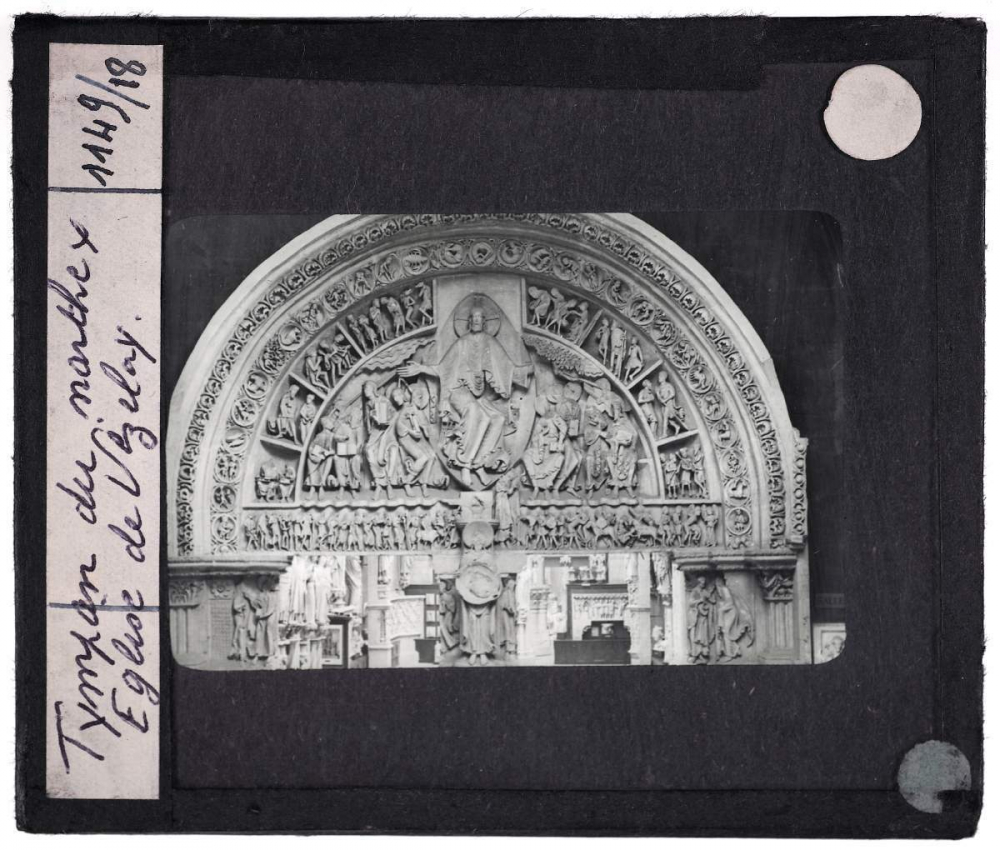 Tympan du narthex
Eglise de Vézelay.
1149/18